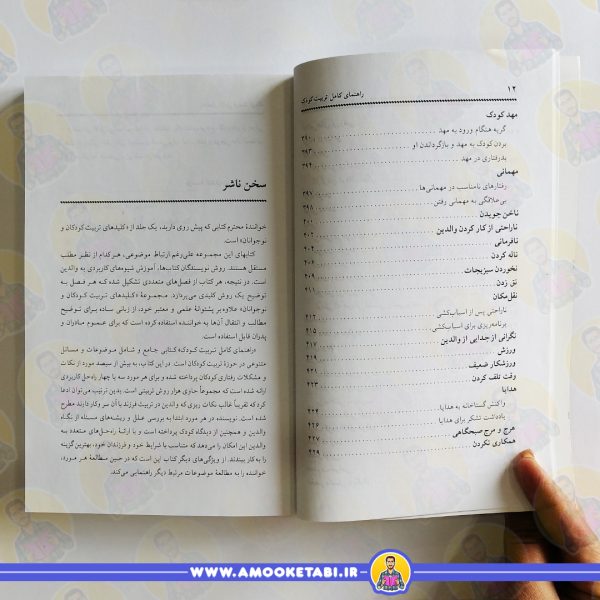 ۱۲
راهنمای کامل تربیت کودک
مهد کودک
گریه هنگام ورود به مهد ۳۹۰
بردن کودک به مهد و بازگرداندن او ۳۹۳
بدرفتاری در مهد ۳۹۴
مهمانی
رفتارهای نامناسب در مهمانی‌ها ۳۹۷
بی‌علاقگی به مهمانی رفتن ۳۹۸
ناخن جویدن
ناراحتی از کار کردن والدین ۴۰۲
نافرمانی ۴۰۴
ناله کردن ۴۰۶
نخوردن سبزیجات ۴۰۷
نق زدن ۴۰۹
نقل‌مکان
ناراحتی پس از اسباب‌کشی ۴۱۲
برنامه‌ریزی برای اسباب‌کشی ۴۱۵
نگرانی از جدایی از والدین ۴۱۷
ورزش ۴۱۹
ورزشکار ضعیف ۴۲۱
وقت تلف کردن ۴۲۳
هدایا
واکنش گستاخانه به هدایا ۴۲۴
یادداشت تشکر برای هدایا
هرج و مرج صبحگاهی ۴۲۷
همکاری نکردن ۴۲۹
سخن ناشر
خوانندهٔ محترم کتابی که پیش روی دارید، یک جلد از «کلیدهای تربیت کودکان و
نوجوانان» است.
کتابهای این مجموعه علی‌رغم ارتباط موضوعی، هرکدام از نظر مطلب
مستقل هستند. روش نویسندگان کتاب‌ها، آموزش شیوه‌های کاربردی به والدین
است. در نتیجه، هر کتاب از فصل‌های متعددی تشکیل شده که هر فصل به
توضیح یک روش کلیدی می‌پردازد. مجموعهٔ «کلیدهای تربیت کودکان و
نوجوانان» علاوه بر پشتوانهٔ علمی و معتبر خود، از زبانی ساده برای توضیح
مطالب و انتقال آن‌ها به خواننده استفاده کرده است که برای عموم مادران و
پدران قابل استفاده است.
«راهنمای کامل تربیت کودک» کتابی جامع و شامل موضوعات و مسائل
متنوعی در حوزهٔ تربیت کودکان است. در این کتاب، به بیش از سیصد مورد از نکات
و مشکلات رفتاری کودکان پرداخته شده و برای هر مورد سه یا چهار راه‌حل کاربردی
ارائه شده است که مجموعاً حاوی هزار روش تربیتی است. بدین ترتیب می‌توان ادعا
کرد که تقریباً غالب نکات ریزی که والدین در تربیت فرزند با آن سر و کار دارند مطرح
شده است. نویسنده در هر مورد ابتدا به بررسی علل و ریشه‌های مسئله از نگاه
والدین و همچنین از دیدگاه کودک پرداخته است و با ارائهٔ راه‌حل‌های متعدد به
والدین این امکان را می‌دهد که متناسب با شرایط خود و فرزندان خود، بهترین گزینه
را به کار ببندند. از ویژگی‌های دیگر کتاب این است که در حین مطالعهٔ هر مورد،
خواننده را به مطالعهٔ موضوعات مرتبط دیگر راهنمایی می‌کند.
WWW.AMOOKETABI.IR